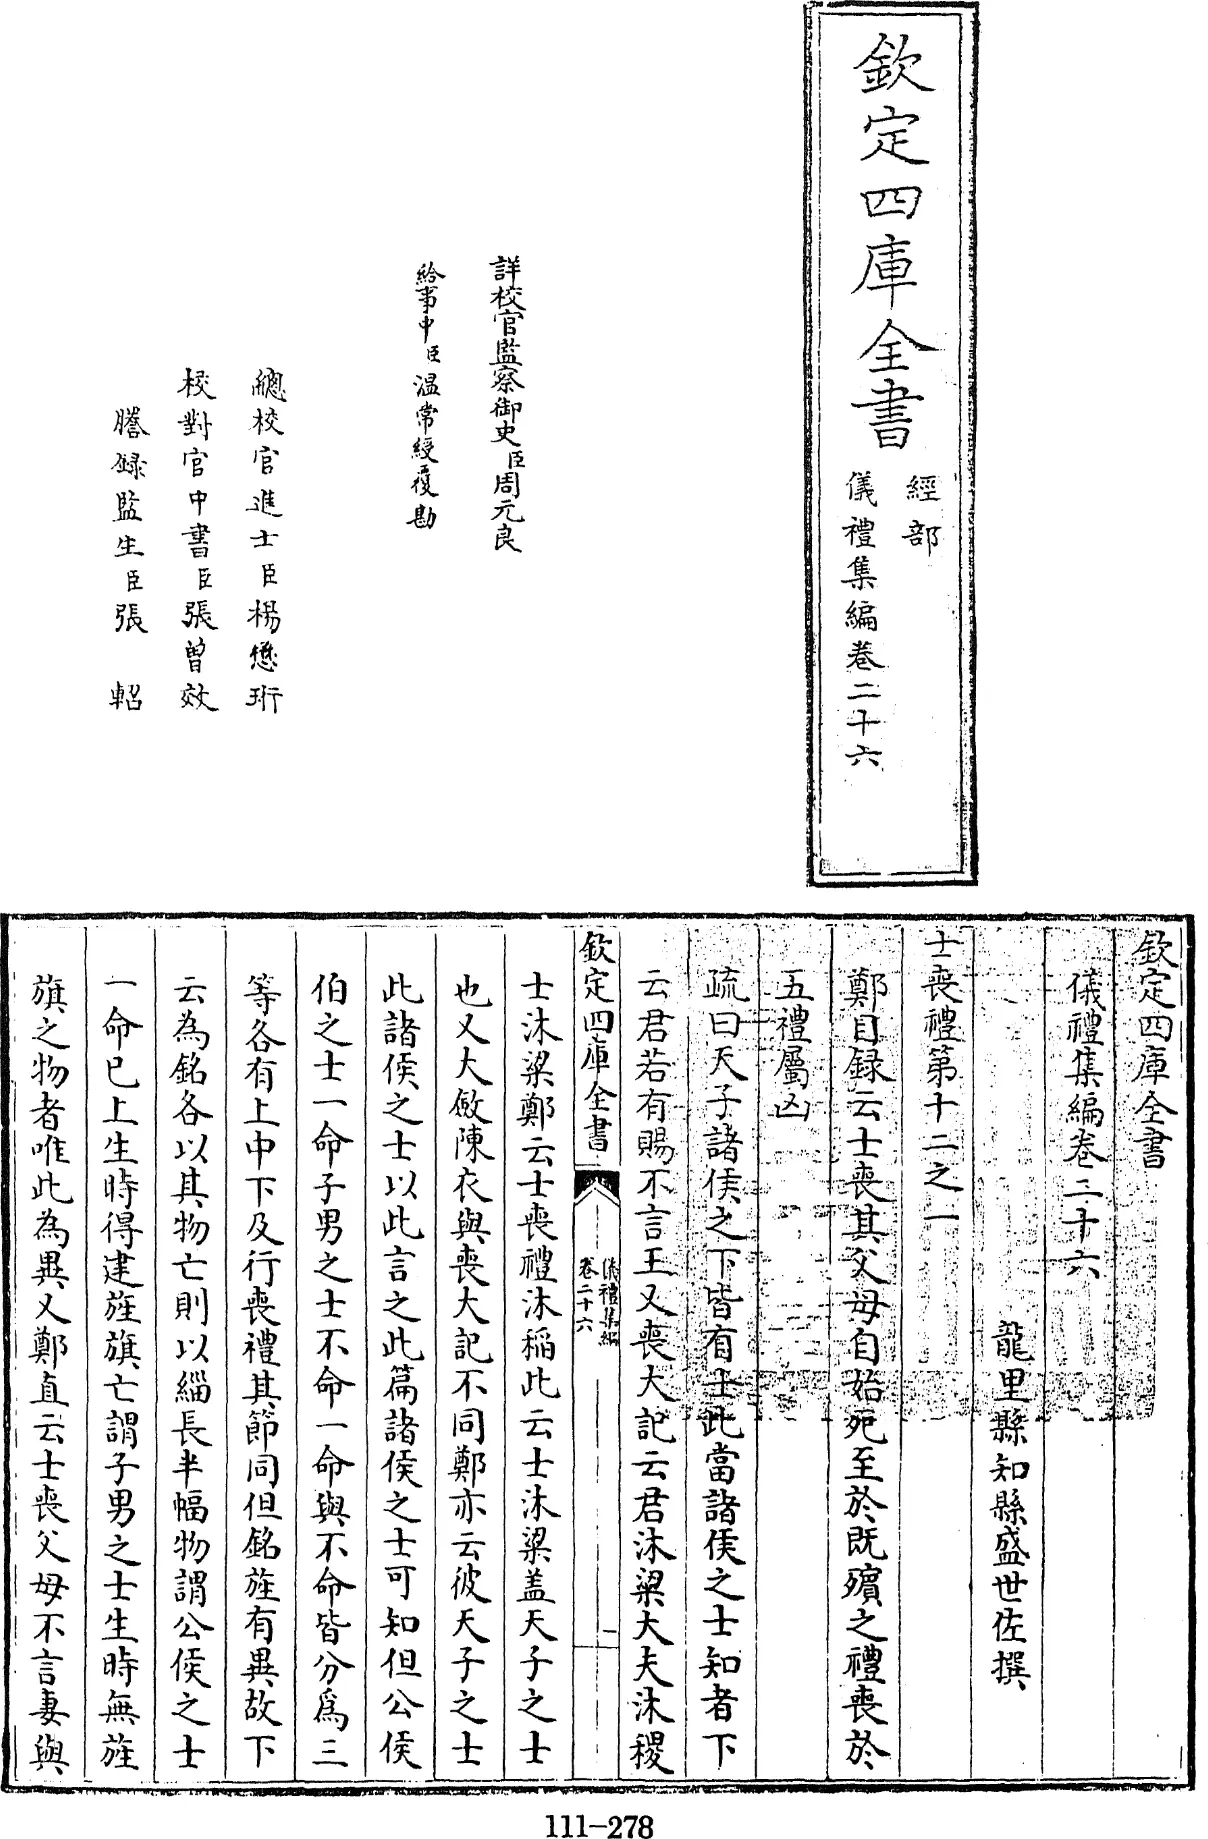 欽定四庫全書
經部
儀禮集編卷二十六
詳校官監察御史臣周元良
給事中臣溫常綬覆勘
總校官進士臣楊懋珩
校對官中書臣張曾效
謄錄監生臣張 軺
欽定四庫全書
儀禮集編卷二十六
龍里縣知縣盛世佐撰
士喪禮第十二之一
鄭目録云士喪其父母自始死至於既殯之禮喪於
五禮屬凶
疏曰天子諸侯之下皆有士此當諸侯之士知者下
云君若有賜不言王又喪大記云君沐粱大夫沐稷
欽定四庫全書
儀禮集編
卷二十六
一
士沐粱鄭云士喪禮沐稻此云士沐粱盖天子之士
也又大斂陳衣與喪大記不同鄭亦云彼天子之士
此諸侯之士以此言之此篇諸侯之士可知但公侯
伯之士一命子男之士不命一命與不命皆分爲三
等各有上中下及行喪禮其節同但銘旌有異故下
云為銘各以其物亡則以緇長半幅物謂公侯之士
一命已上生時得建旌旗亡謂子男之士生時無旌
旗之物者唯此為異又鄭直云士喪父母不言妻與
111-278